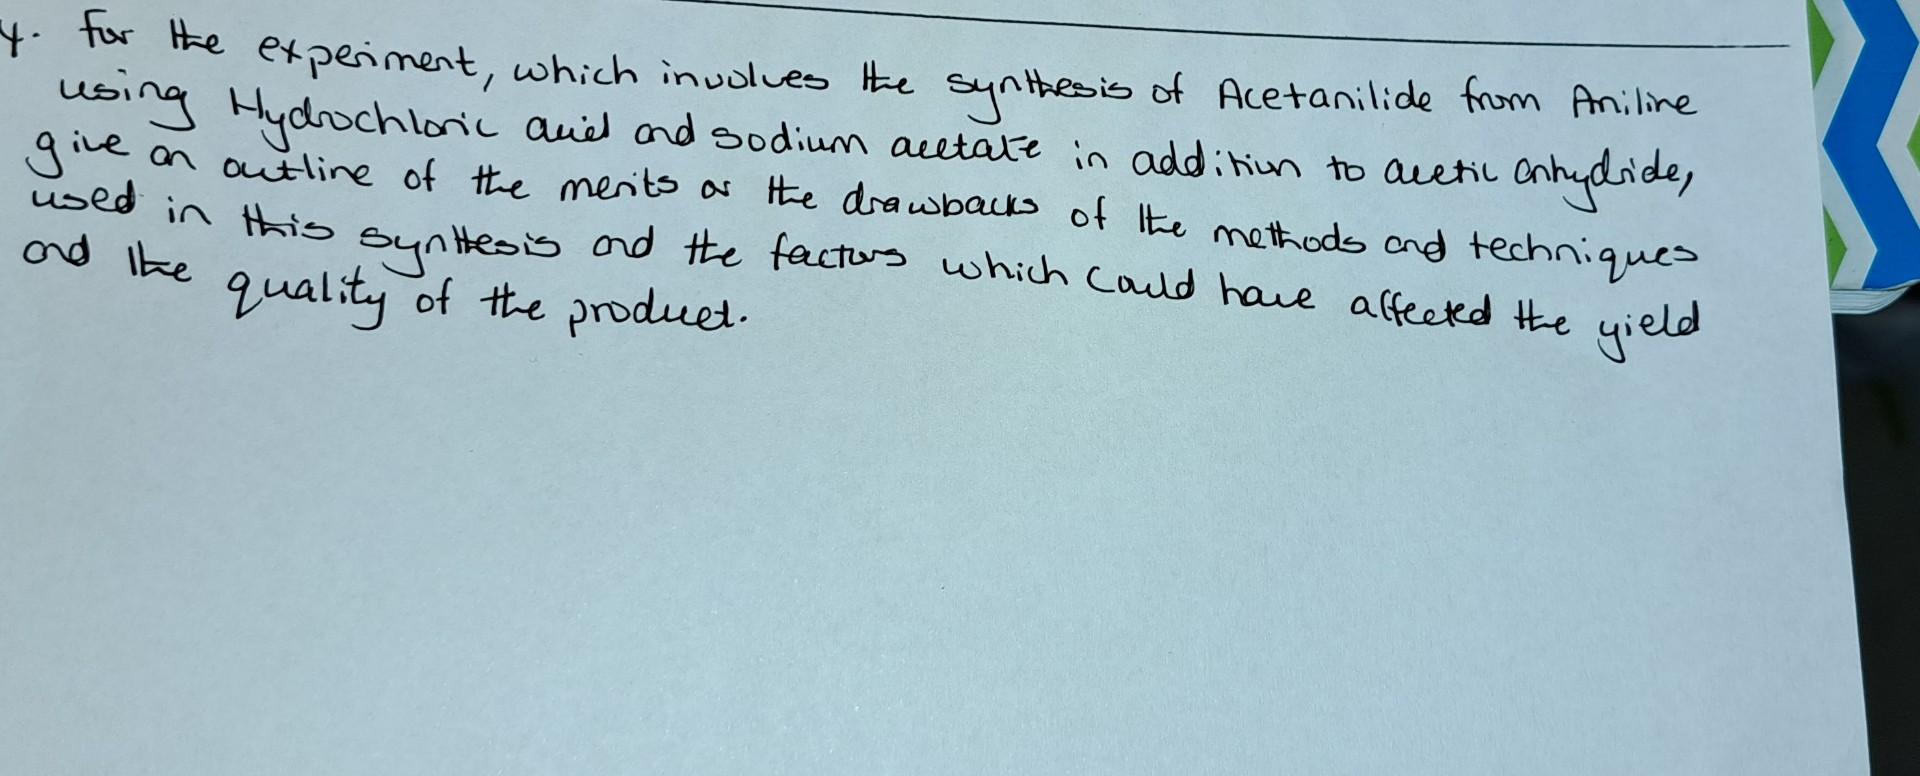 4. For the experiment, which involves the synthesis of Acetanilide from Aniline
using Hydrochloric acid and sodium acetate in addition to acetic anhydride,
give an outline of the merits or the drawbacks of the methods and techniques
used in this synthesis and the factors which could have affected the yield
and the quality of the product.